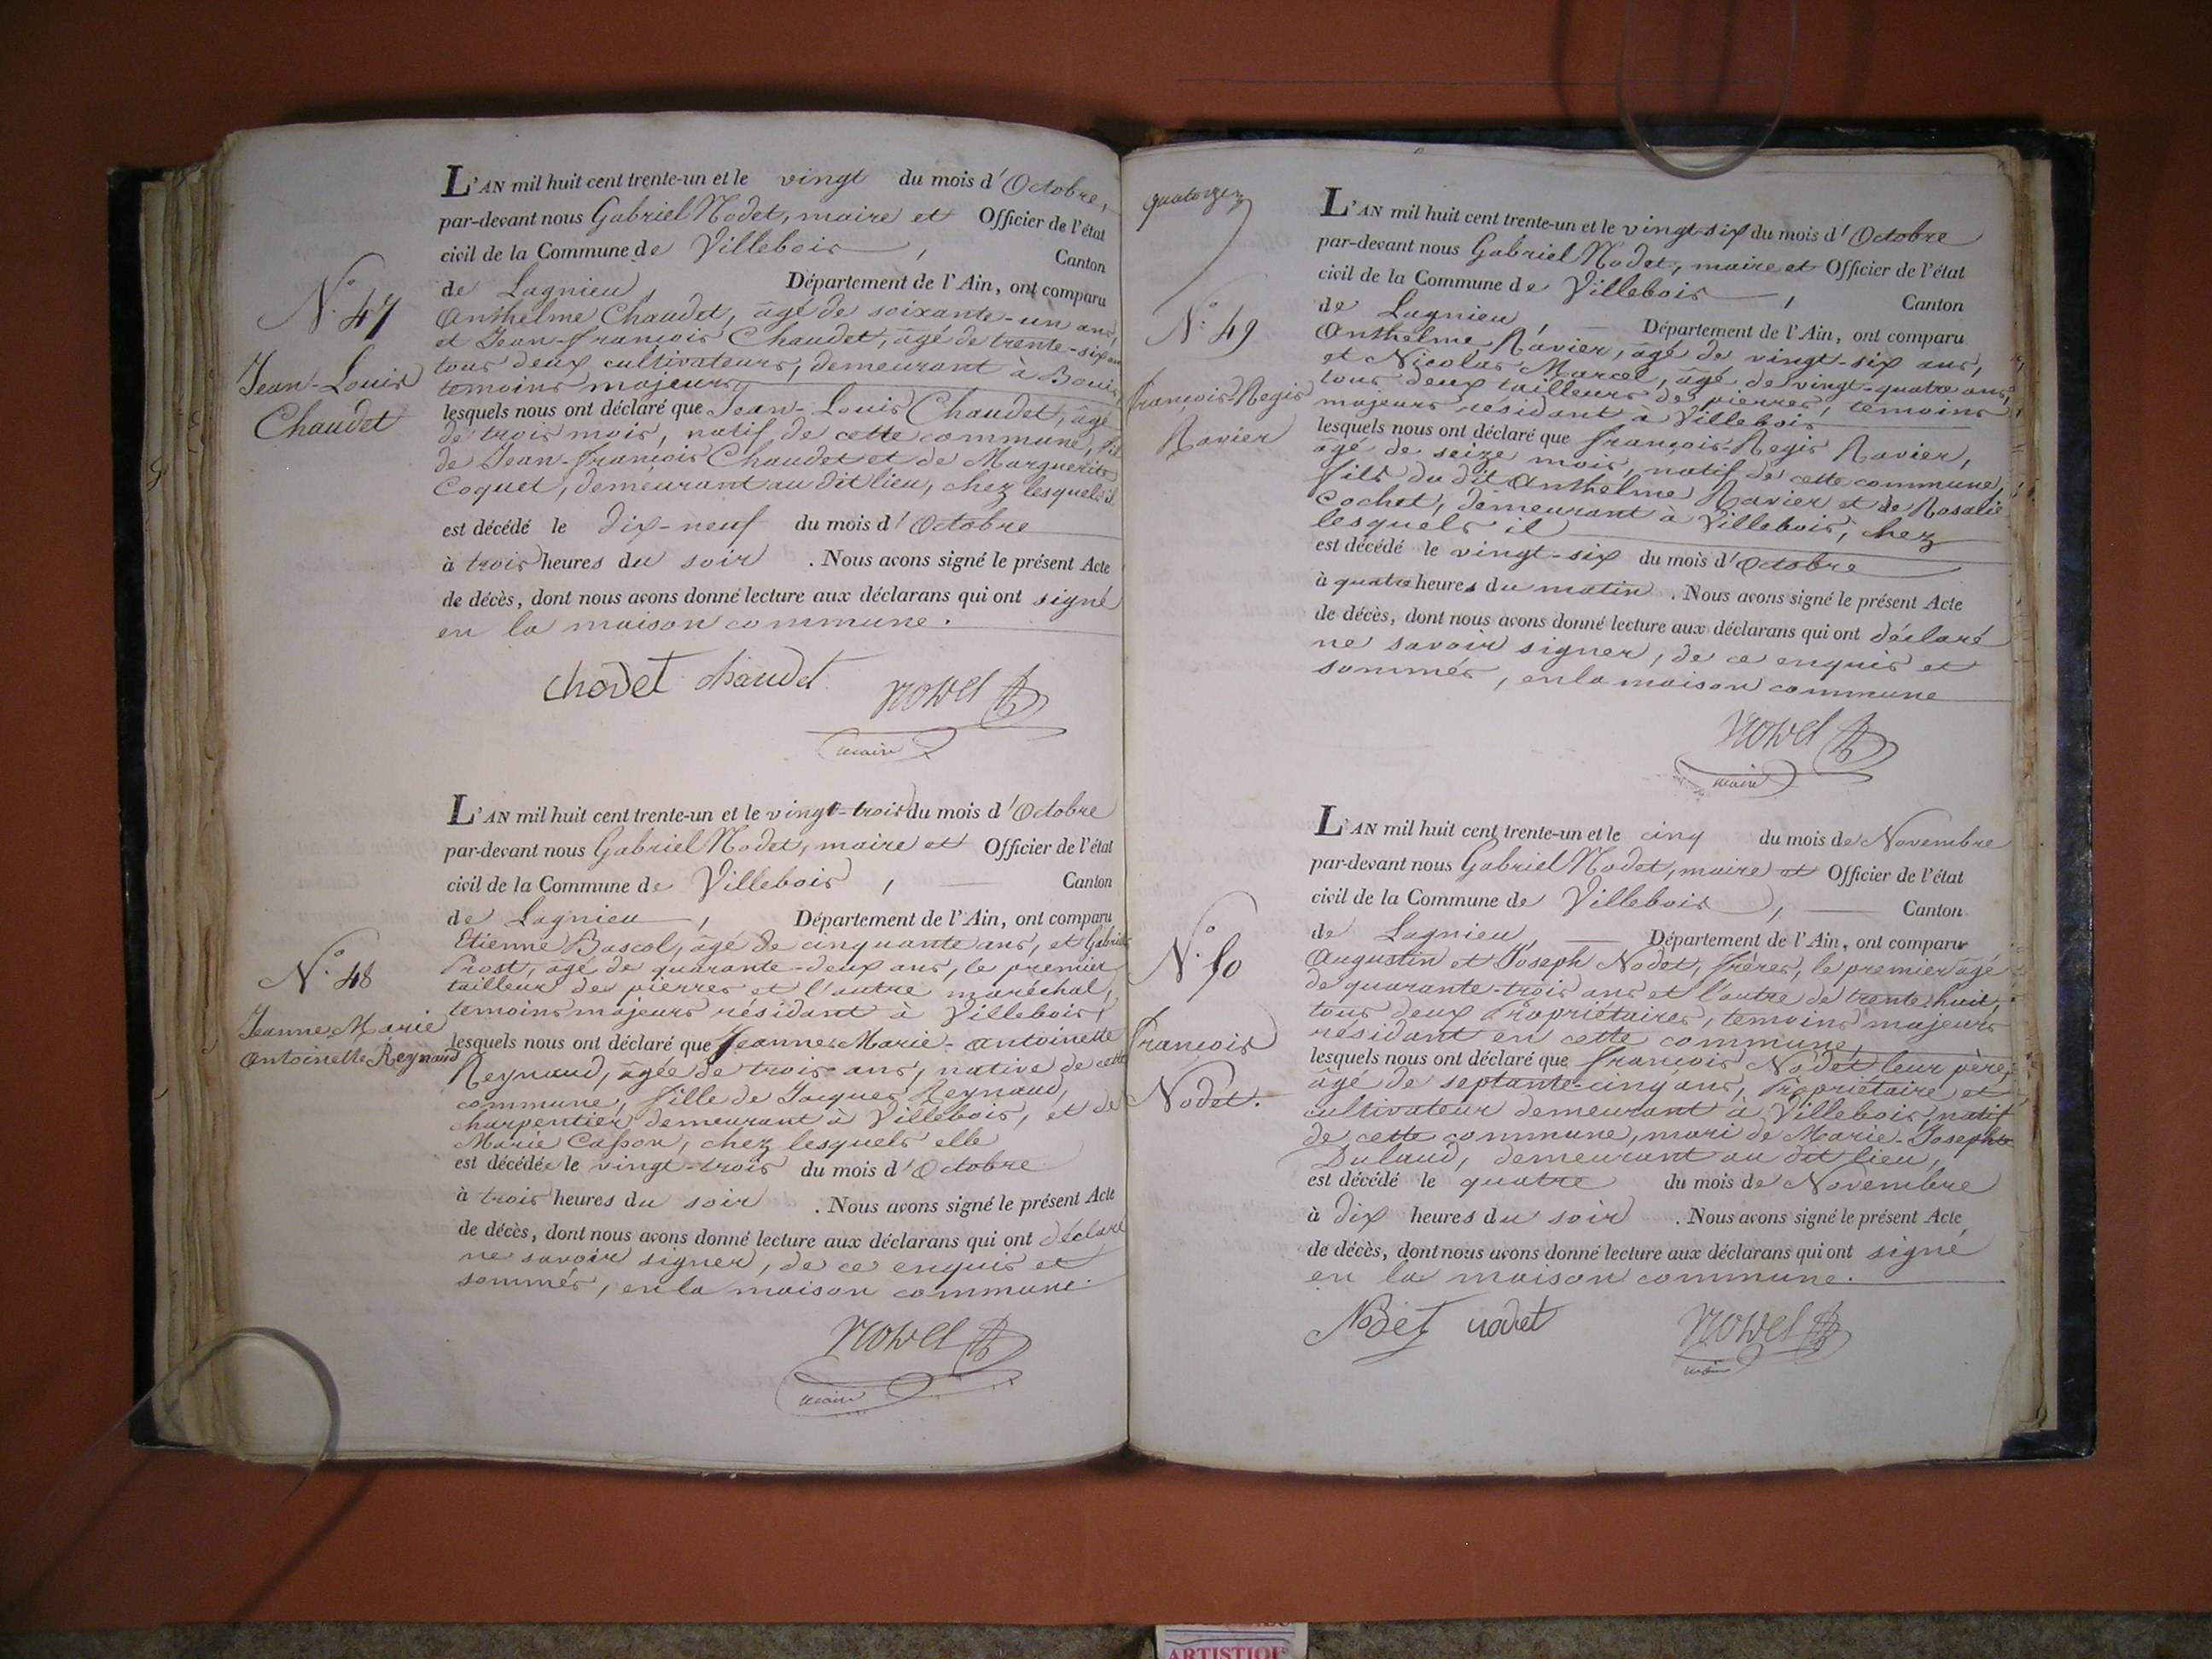 L'AN mil huit cent trente-un et le vingt du mois d'Octobre,
par-devant nous Gabriel Nodet, maire et Officier de l'état
civil de la Commune de Villebois, Canton
de Lagnieu, Département de l'Ain, ont comparu
Anthelme Chaudet, âgé de soixante-un ans,
et Jean-François Chaudet, âgé de trente-six ans
tous deux cultivateurs, demeurant à Bouis
temoins majeurs
N.o 47
Jean-Louis
Chaudet
lesquels nous ont déclaré que Jean-Louis Chaudet, âgé
de trois mois, natif de cette commune, fils
de Jean-François Chaudet et de Marguerite
Coquet, demeurant au dit lieu, chez lesquels il
est décédé le dix-neuf du mois d'Octobre
à trois heures du soir. Nous avons signé le présent Acte
de décès, dont nous avons donné lecture aux déclarans qui ont signé
en la maison commune.
chodet chaudet Nodet
maire
L'AN mil huit cent trente-un et le vingt-trois du mois d'Octobre
par-devant nous Gabriel Nodet, maire et Officier de l'état
civil de la Commune de Villebois, Canton
de Lagnieu, Département de l'Ain, ont comparu
Etienne Bascol, âgé de cinquante ans, et Gabriel
Prost, âgé de quarante-deux ans, le premier
tailleur de pierres et l'autre maréchal,
temoins majeurs résidant à Villebois,
N.o 48
Jeanne Marie
Antoinette Reynaud
lesquels nous ont déclaré que Jeanne Marie-Antoinette
Reynaud, âgée de trois ans, native de cette
commune, fille de Jacques Reynaud,
charpentier demeurant à Villebois, et de
Marie Casson, chez lesquels elle
est décédée le vingt-trois du mois d'Octobre
à trois heures du soir. Nous avons signé le présent Acte
de décès, dont nous avons donné lecture aux déclarans qui ont déclaré
ne savoir signer, de ce enquis et
sommés, en la maison commune.
Nodet
maire
quatorze
L'AN mil huit cent trente-un et le vingt-six du mois d'Octobre
par-devant nous Gabriel Nodet, maire et Officier de l'état
civil de la Commune de Villebois, Canton
de Lagnieu, Département de l'Ain, ont comparu
Anthelme Ravier, âgé de vingt-six ans,
et Nicolas Marcel, âgé de vingt-quatre ans,
tous deux tailleurs de pierres, temoins
majeurs résidant à Villebois
N.o 49
François-Regis
Ravier
lesquels nous ont déclaré que François-Regis Ravier,
âgé de seize mois, natif de cette commune,
fils du dit Anthelme Ravier et de Rosalie
Cochet, demeurant à Villebois, chez
lesquels il
est décédé le vingt-six du mois d'Octobre
à quatre heures du matin. Nous avons signé le présent Acte
de décès, dont nous avons donné lecture aux déclarans qui ont déclaré
ne savoir signer, de ce enquis et
sommés, en la maison commune
Nodet
maire
L'AN mil huit cent trente-un et le cinq du mois de Novembre
par-devant nous Gabriel Nodet, maire et Officier de l'état
civil de la Commune de Villebois, Canton
de Lagnieu, Département de l'Ain, ont comparu
Augustin et Joseph Nodet, frères, le premier âgé
de quarante-trois ans et l'autre de trente huit,
tous deux Propriétaires, temoins majeurs
résidant en cette commune,
N.o 50
François
Nodet.
lesquels nous ont déclaré que François Nodet leur père,
âgé de septante-cinq ans, Propriétaire et
cultivateur demeurant à Villebois, natif
de cette commune, mari de Marie-Josephte
Dulaud, demeurant au dit lieu,
est décédé le quatre du mois de Novembre
à dix heures du soir. Nous avons signé le présent Acte
de décès, dont nous avons donné lecture aux déclarans qui ont signé
en la maison commune.
Nodet nodet Nodet
maire
ARTISTIQUE